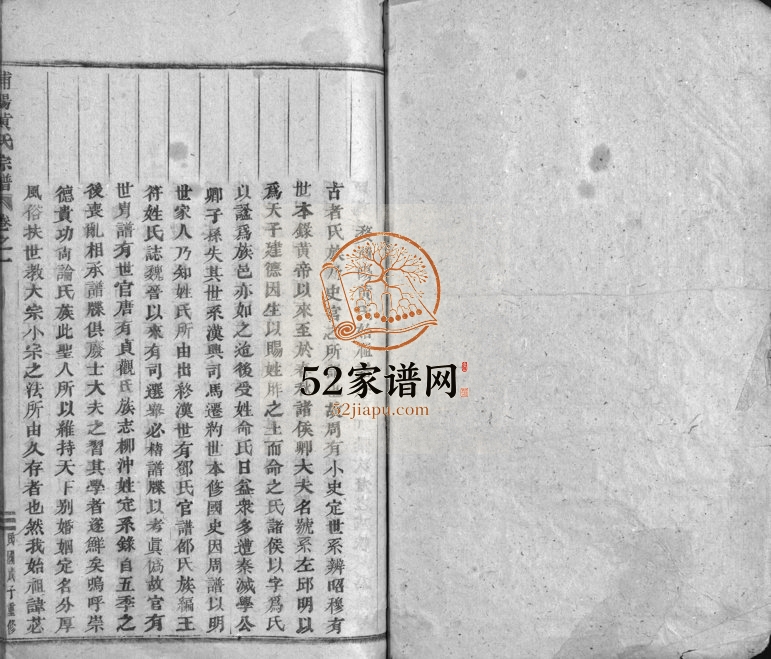 古者氏族乃史官之所 周有小史定世系辨昭穆有
世本錄黃帝以來至於 諸侯卿大夫名號系左邱明以
爲天子建德因生以賜姓胙之土而命之氏諸侯以字爲氏
以諡爲族邑亦如之逭後受姓命氏日益衆多遭秦滅學公
卿子孫失其世系漢興司馬遷約世本修國史因周譜以明
世家人乃知姓氏所由出移漢世有鄧氏官譜邵氏族編王
符姓氏誌魏晉以來有司選舉必稽譜牒以考真僞故官有
世胄譜有世官唐有貞觀氏族志柳沖姓定系錄自五季之
後喪亂相承譜牒俱廢士大夫之習其學者遂鮮矣嗚呼崇
德貴功尚論氏族此聖人所以維持天下別婚姻定名分厚
風俗扶世教大宗小宗之法所由久存者也然我始祖諱苾
浦陽黃氏宗譜 卷之一
民國 子重修
52家谱网
52jiapu.com